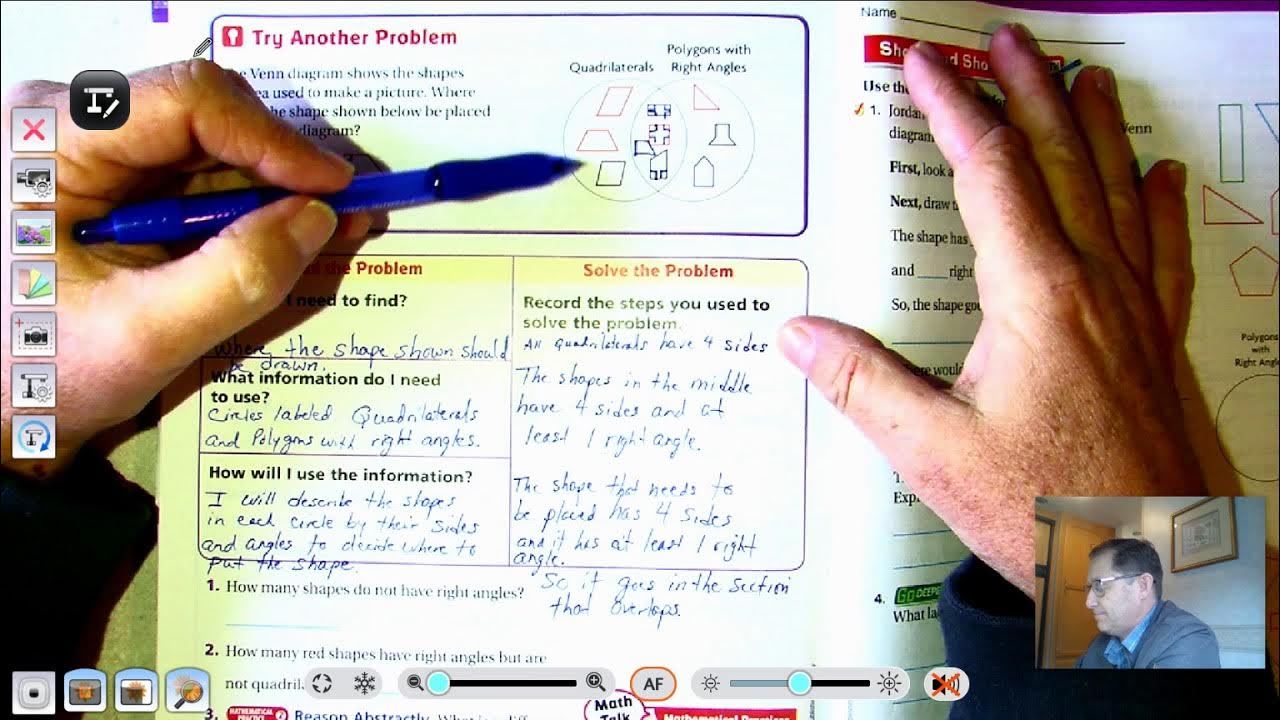 Try Another Problem
Venn diagram shows the shapes
used to make a picture. Where
the shape shown below be placed
diagram?
Quadrilaterals
Polygons with
Right Angles
the Problem
need to find?
Where the shape shown should
be drawn.
What information do I need
to use?
Circles labeled Quadrilaterals
and Polygons with right angles.
How will I use the information?
I will describe the shapes
in each circle by their sides
and angles to decide where to
put the shape.
Solve the Problem
Record the steps you used to
solve the problem.
All quadrilaterals have 4 sides
The shapes in the middle
have 4 sides and at
least 1 right angle.
The shape that needs to
be placed has 4 sides
and it has at least 1 right
angle.
So it goes in the section
that overlaps.
1. How many shapes do not have right angles?
2. How many red shapes have right angles but are
not quadril
3. MATHEMATICAL PRACTICE 2 Reason Abstractly
Math
Talk
Mathematical Practices
AF
Name
Use the
1. Jordan
diagram
Venn
First, look a
Next, draw
The shape has
and ____ right
So, the shape goe
would
Polygons
with
Right Angle
Exp
4. GO DEEPER
What la